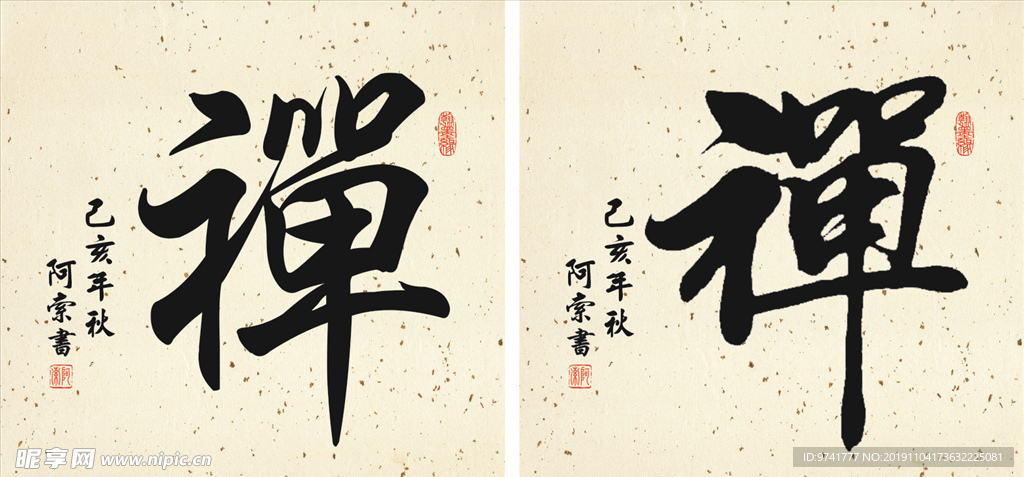 禪
己亥年秋
阿索書
禪
己亥年秋
阿索書
昵享网 www.nipic.cn
ID:9741777 NO:20191104173632225081